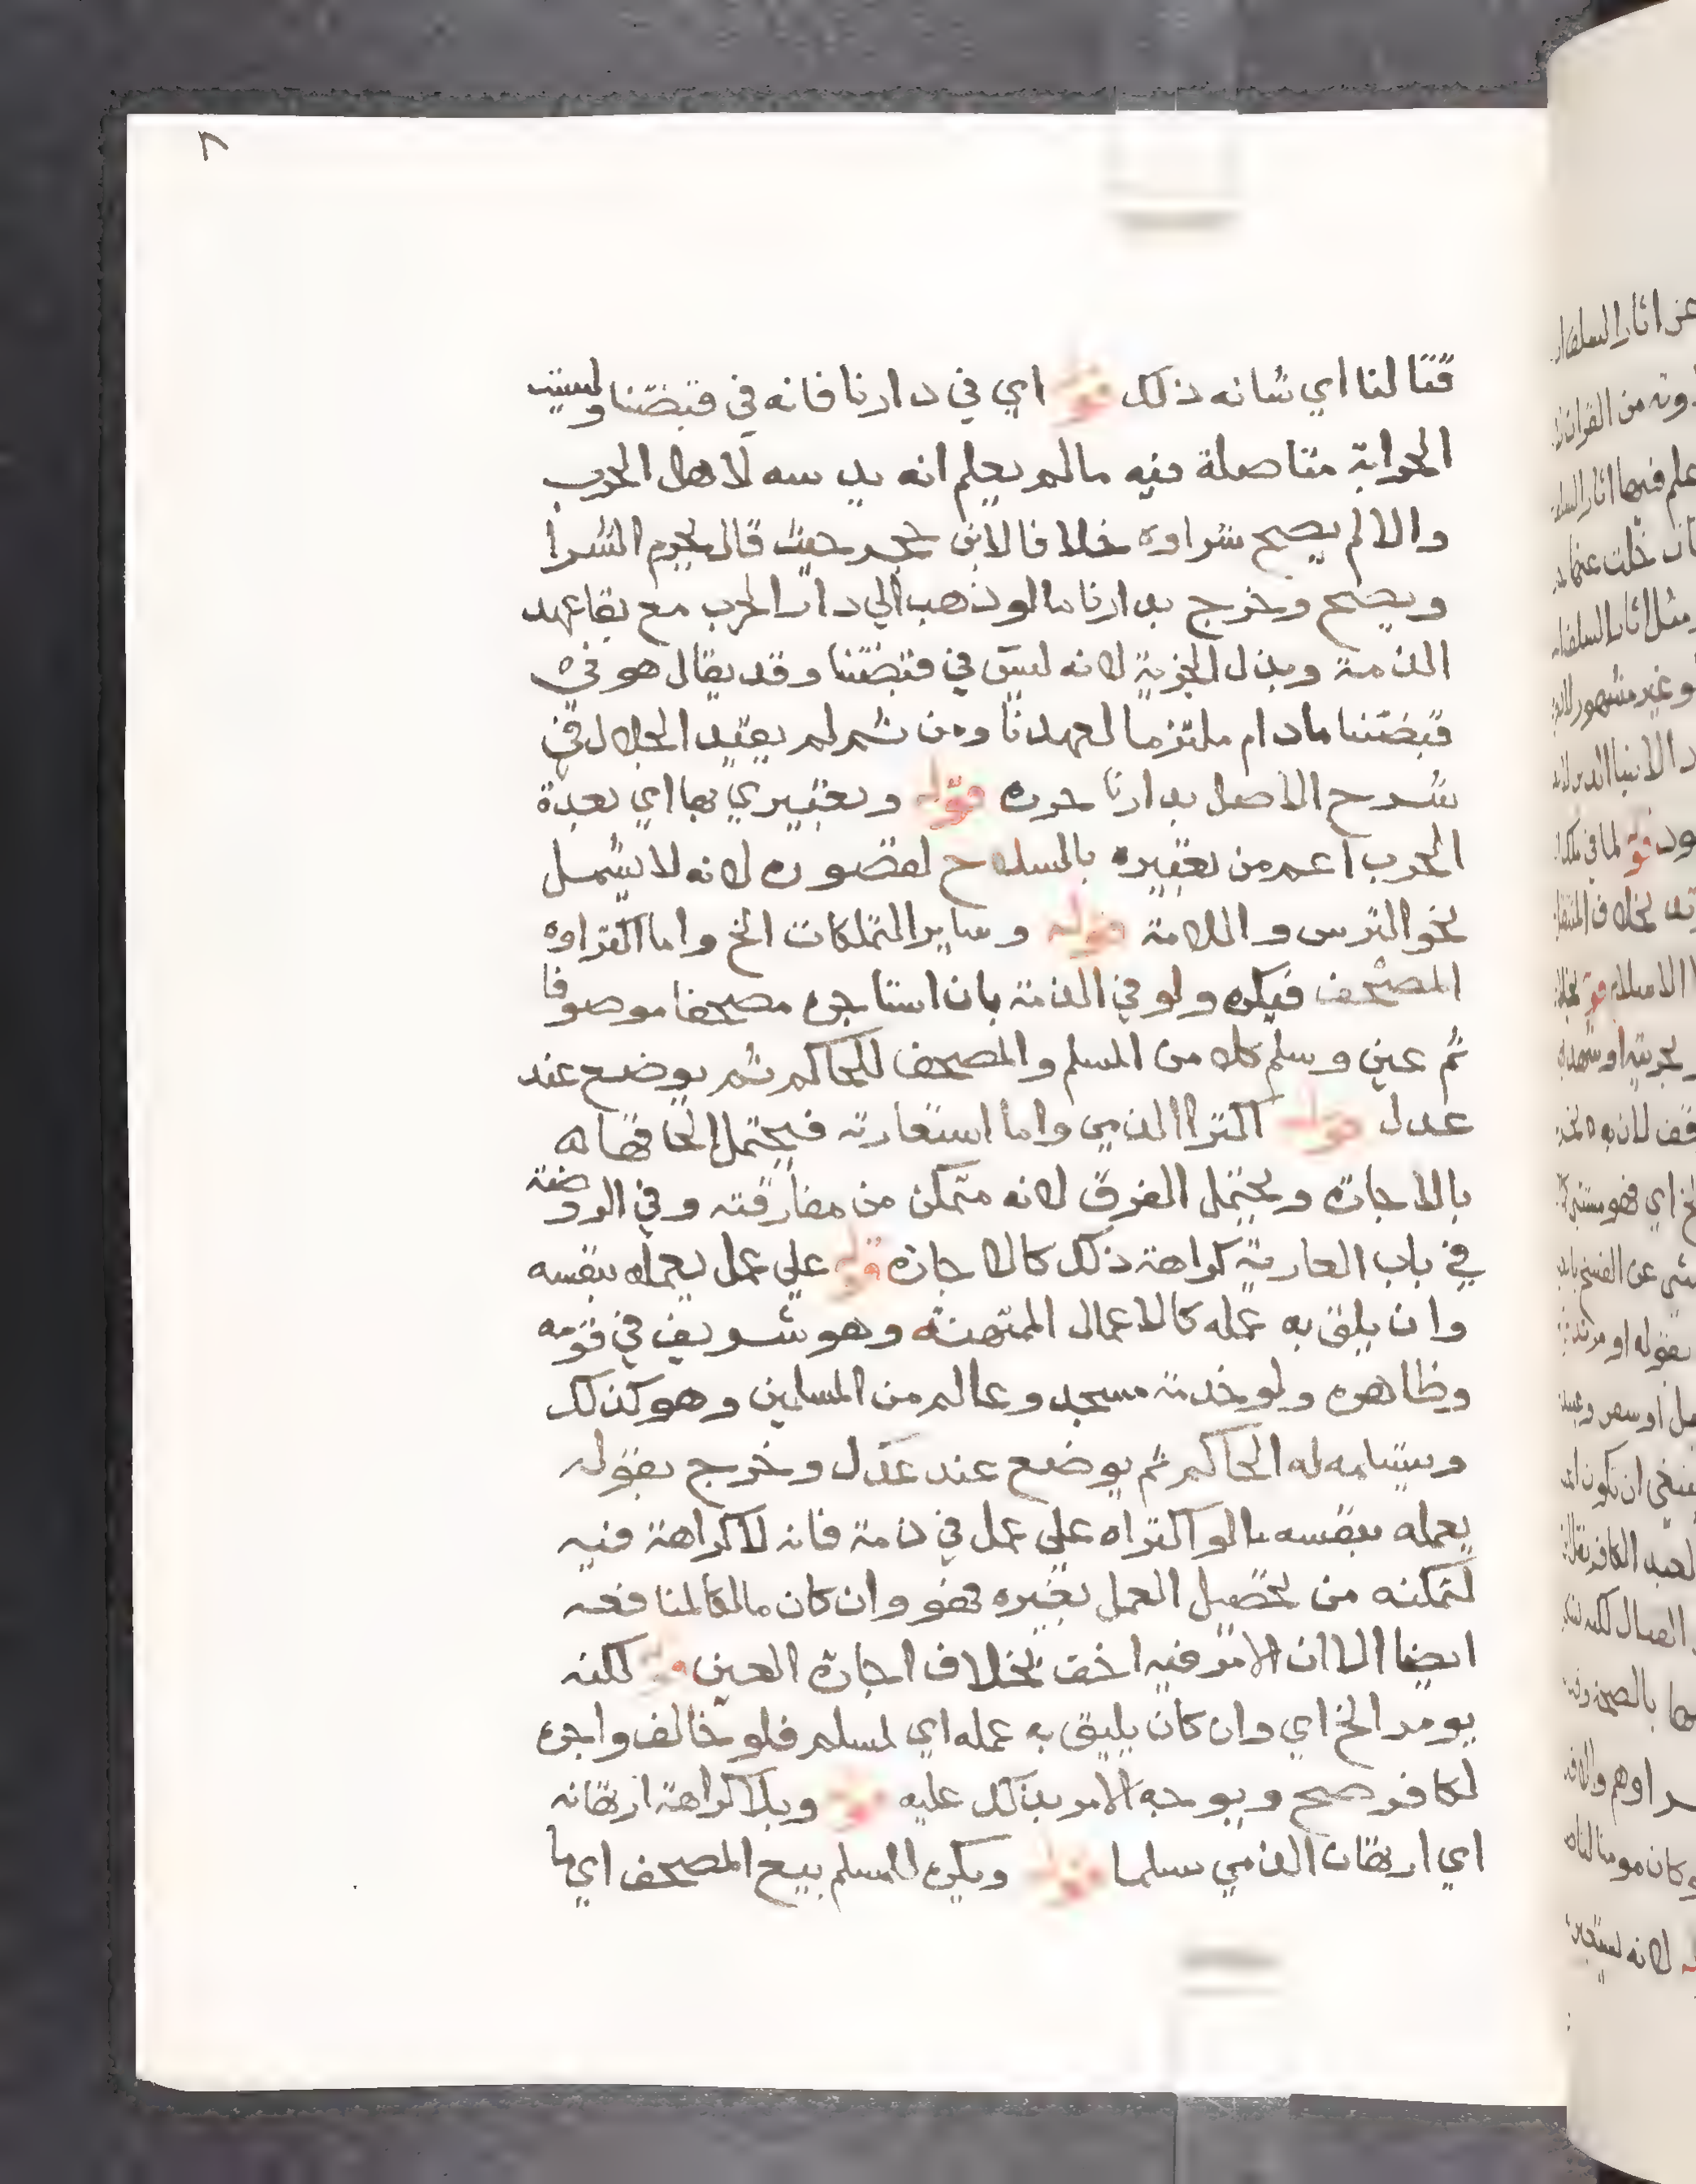 ٨
قتالنا اي شانه ذلك قوله اي في دارنا فانه في قبضتنا وليست
الحرابة متاصلة فيه مالم يعلم انه يدسه لاهل الحرب
والا لم يصح شراوه خلافا لابن حجر حيث قال يحرم الشرا
ويصح وخرج بدارنا مالو ذهب الي دار الحرب مع بقا عهد
الذمة وبذل الجزية لانه ليس في قبضتنا وقد يقال هو في
قبضتنا مادام ملتزما لعهدنا ومن ثم لم يقيد الجلال في
شرح الاصل بدارنا حرره قوله وتعبيري بها اي بعدة
الحرب اعم من تعبيره بالسلاح لقصوره لانه لا يشمل
نحو الترس واللامة قوله وساير التملكات الخ واما اكتراوه
المصحف فيكره ولو في الذمة بان استاجره مصحفا موصوفا
ثم عين وسلم كلا من المسلم والمصحف للحاكم ثم يوضع عند
عدل قوله اكترا الذمي واما استعارته فيحتمل الحاقها ه
بالاجارة ويحتمل الفرق لانه متمكن من مفارقته وفي الروضة
في باب العارية كراهة ذلك كالاجارة قوله علي عمل يعمله بنفسه
وان يلق به عمله كالاعمال الممتهنة وهو شريف في قومه
وظاهره ولو خدمة مسجد وعالم من المسلمين وهو كذلك
ويتسلمه له الحاكم ثم يوضع عند عدل وخرج بقوله
يعمله بنفسه مالو اكتراه علي عمل في ذمة فانه لا كراهة فيه
لتمكنه من تحصيل العمل بغيره فهو وان كان مالكا لمنافعه
ايضا الا ان الامر فيه اخف بخلاف اجارة العين قوله لكنه
يومر الخ اي وان كان يليق به عمله اي لمسلم فلو خالف واجره
لكافر صح ويوجه الامر بذلك عليه قوله وبلا كراهة ارتهانه
اي ارتهان الذمي مسلما قوله ويكره للمسلم بيع المصحف اي ما